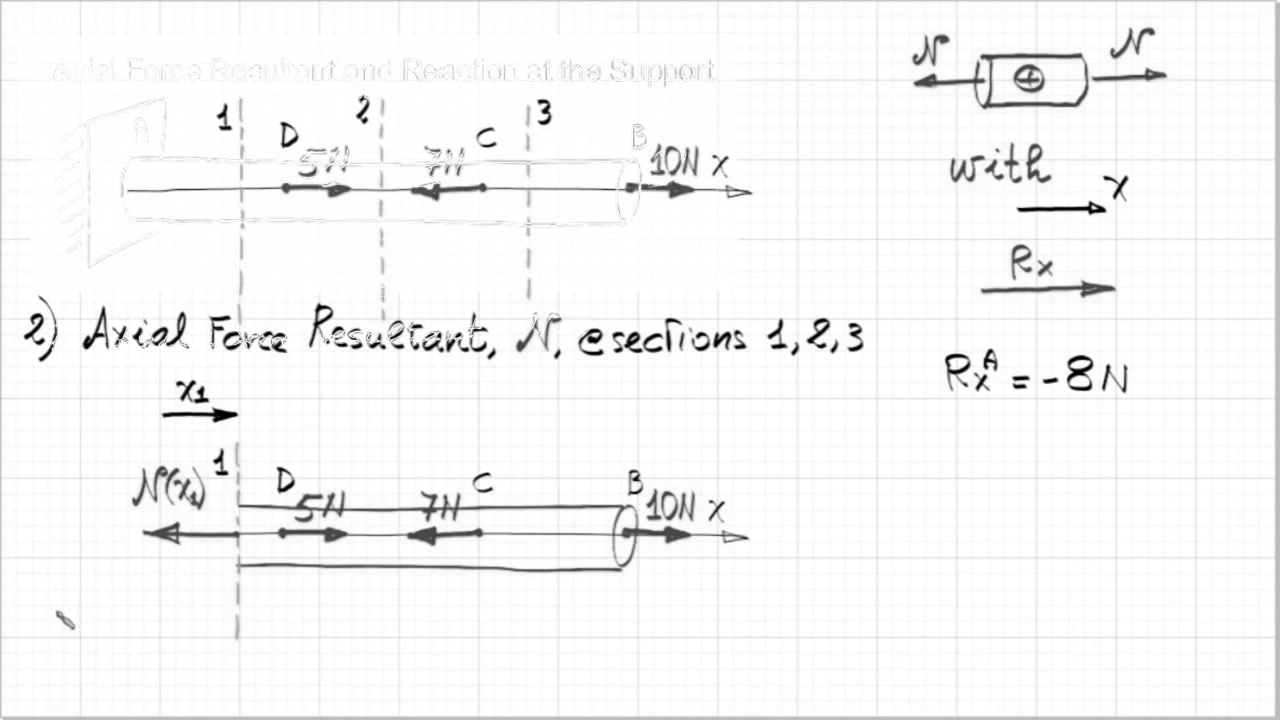 Axial Force Resultant and Reaction at the Support
1 2 3
A D 5N 7N C B 10N x
2) Axial Force Resultant, N, @sections 1,2,3
x₁
1
N(x₁) D 5N 7N C B 10N x
N + N
with
x
Rx
Rxᴬ = -8N